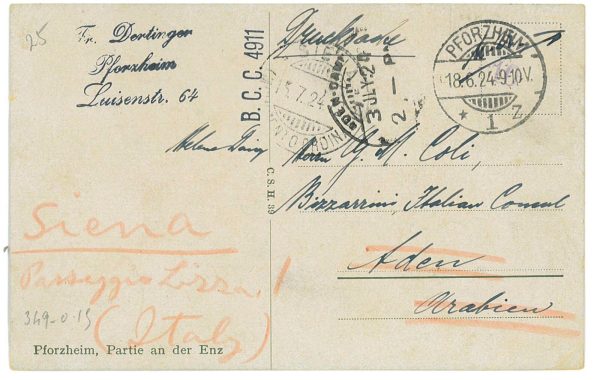 25
Fr. Dertinger
Pforzheim
Luisenstr. 64
B. C. C. 4911
Drucksache
PFORZHEIM
18.6.24.9-10V.
* 1 Z
15.7.24
3 JUL 24
2. - P
C. S. H. 39
Herrn G. M. Coli,
Bizzarrini Italian Consul
Aden
Arabien
Siena
Passeggio Lizza, 1
(Italy)
349-0-15
Pforzheim, Partie an der Enz